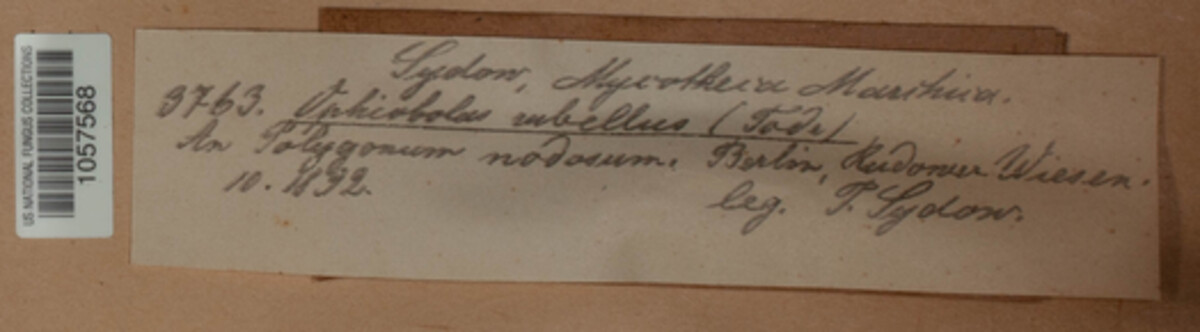 US NATIONAL FUNGUS COLLECTIONS
1057568
Sydow, Mycotheca Marchica.
3763. Ophiobolus rubellus (Tode)
An Polygonum nodosum. Berlin, Rudower Wiesen.
10. 1892.
leg. P. Sydow.